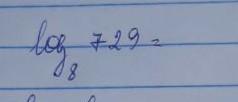 log₈ 729 =